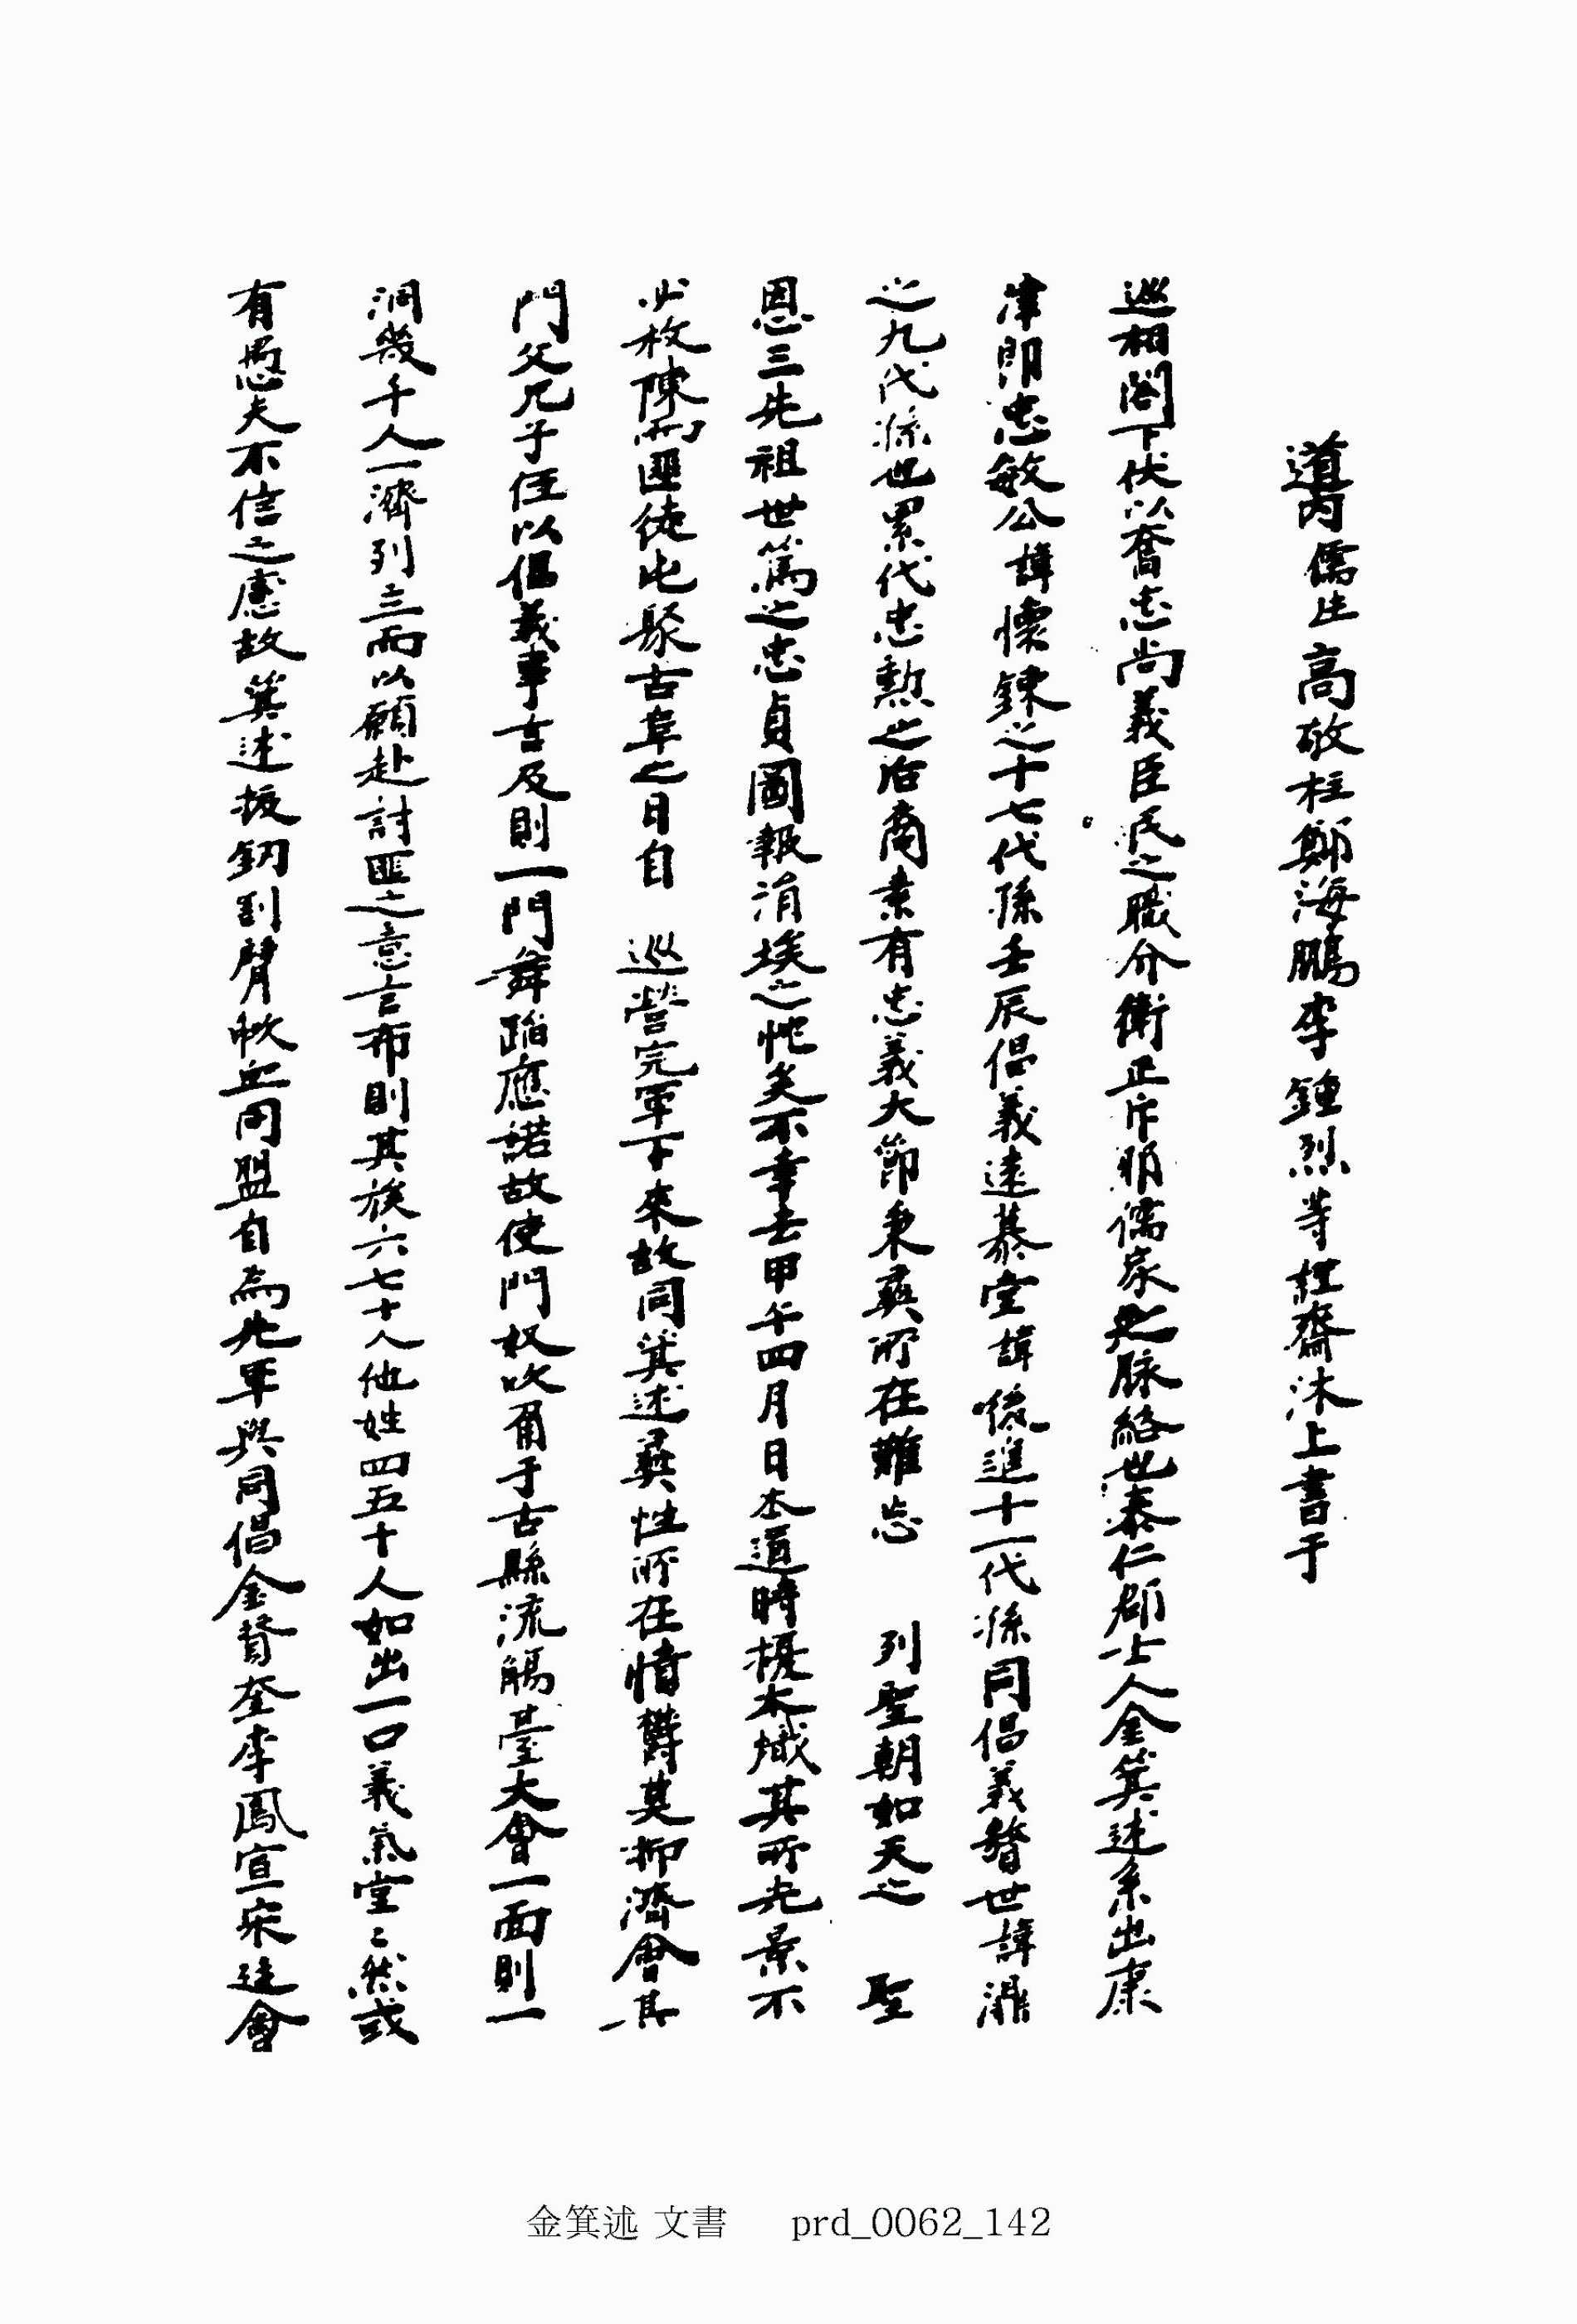 道內儒生高敬柱鄭海鵬李鍾烈等謹齋沐上書于
巡相閤下伏以奮忠尙義臣民之職分衛正斥邪儒家之脉絡也泰仁郡士人金箕述系出康
津卽忠敏公諱懷鍊之十七代孫壬辰倡義遠慕堂諱後進十一代孫同倡義贊世諱鼎
之九代孫也累代忠勲之冶裔素有忠義大節秉彛所在難忘 列聖朝如天之 聖
恩三先祖世篤之忠貞圖報涓埃之忱矣不幸去甲午四月日本道時擾大熾其所光景不
必枚陳而匪徒屯聚古阜之日自 巡營完軍下來故同箕述彛性所在憤欝莫抑濟會一其
門父兄子侄以倡義事言及則一門舞蹈應諾故使門奴吹角于古縣流觴臺大會一面則一
洞幾千人一濟列立而以願赴討匪之意言布則其族六七十人他姓四五十人如出一口義氣堂〻然或
有愚夫不信之慮故箕述拔釰割臂㰱血同盟自爲先軍與同倡金賛奎李鳳宣宋廷會
金箕述 文書 prd_0062_142